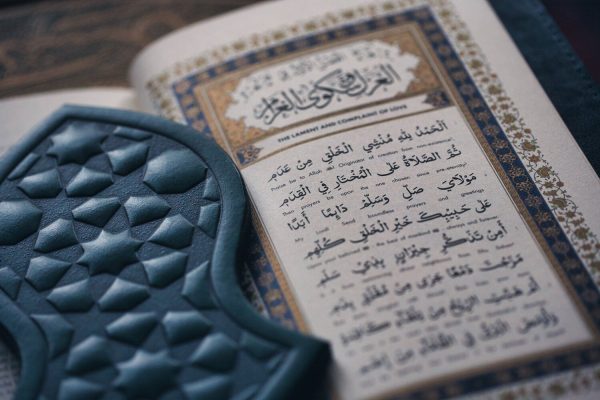 الغزل وشكوى الغرام
THE LAMENT AND COMPLAINT OF LOVE
اَلْحَمْدُ لِلّٰهِ مُنْشِي الْخَلْقِ مِنْ عَدَمِ
Praise be to Allah Originator of creation from non-existence
ثُمَّ الصَّلَاةُ عَلَى الْمُخْتَارِ فِي الْقِدَمِ
Then prayers be upon the one chosen since pre-eternity
مَوْلَايَ صَلِّ وَسَلِّمْ دَائِمًا أَبَدًا
My Lord Send boundless prayers and greetings
عَلَى حَبِيبِكَ خَيْرِ الْخَلْقِ كُلِّهِمِ
Upon your beloved the best of
أَمِنْ تَذَكُّرِ جِيرَانٍ بِذِي سَلَمِ
مَزَجْتَ دَمْعًا جَرَى مِنْ مُقْلَةٍ بِدَمِ
أَمْ هَبَّتِ الرِّيحُ مِنْ تِلْقَاءِ كَاظِمَةٍ
وَأَوْمَضَ الْبَرْقُ فِي الظَّلْمَاءِ مِنْ إِضَمِ